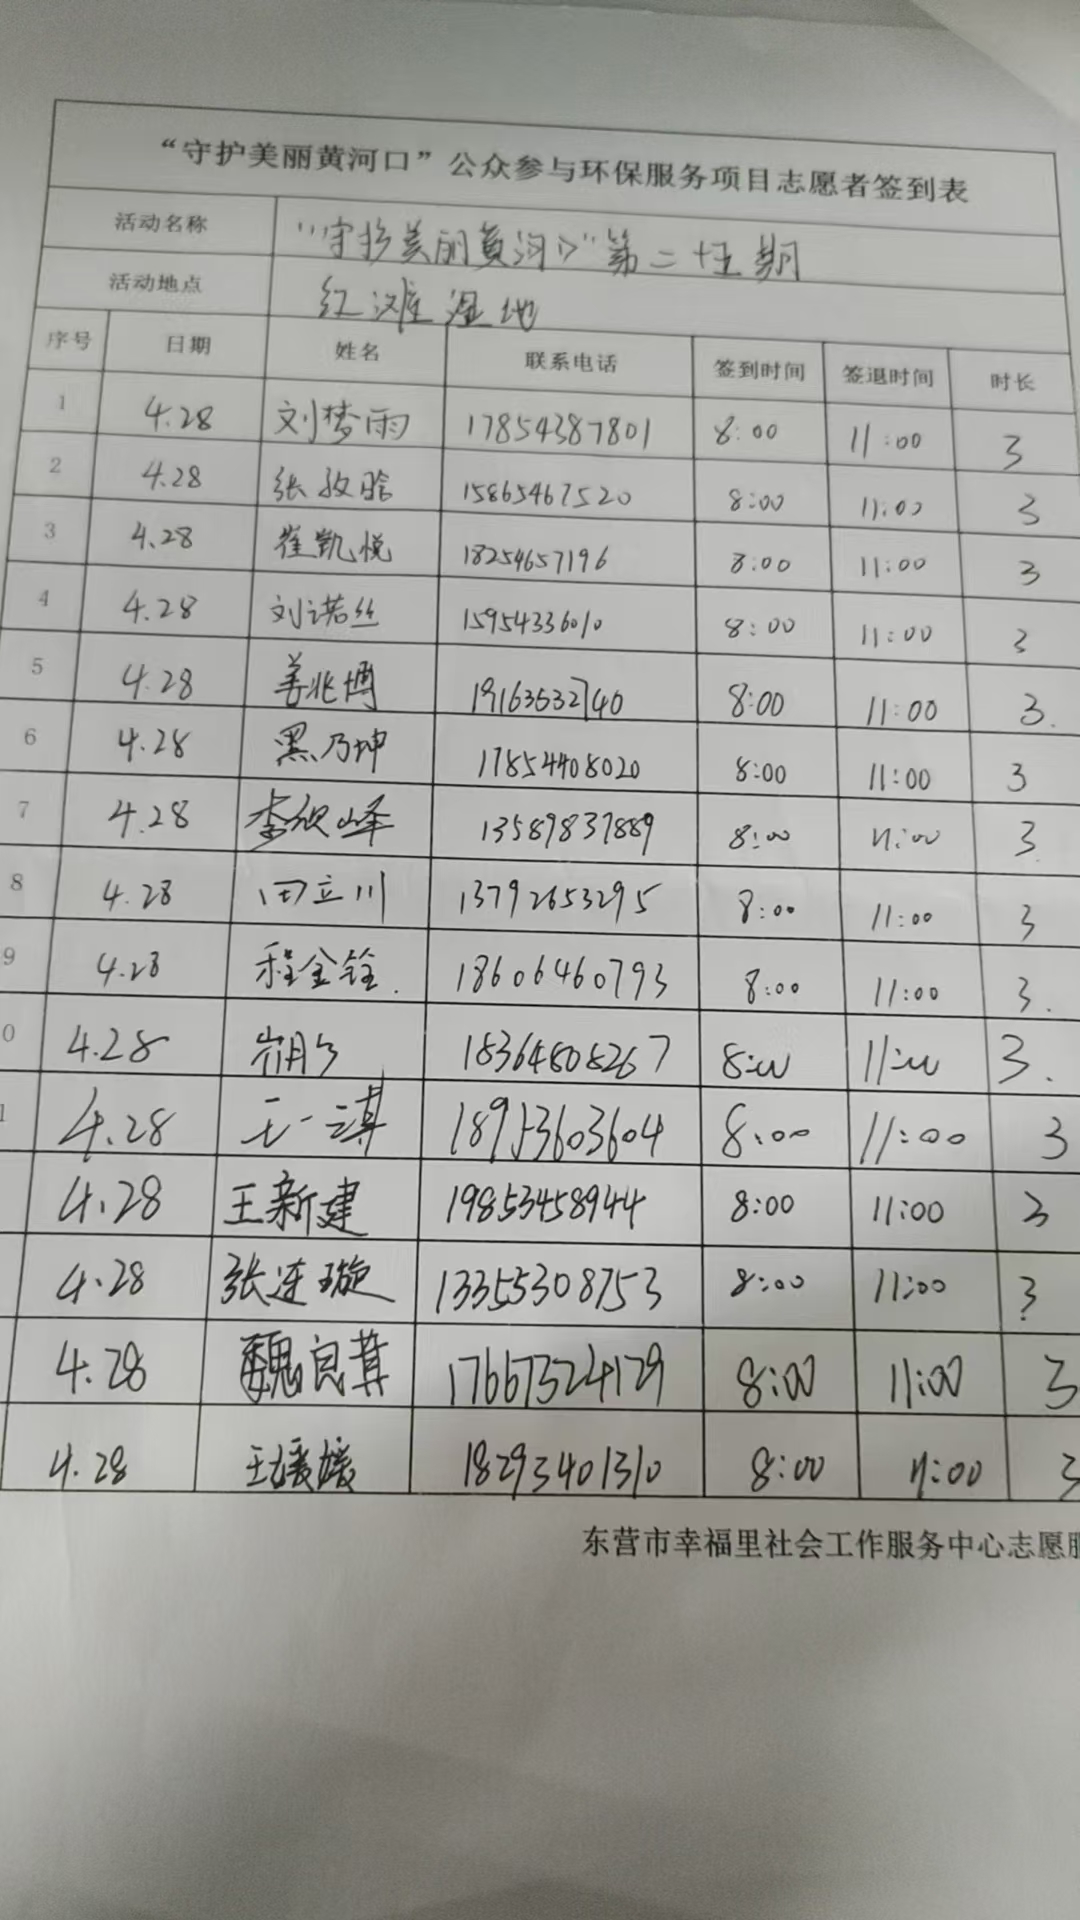 “守护美丽黄河口”公众参与环保服务项目志愿者签到表
活动名称 “守护美丽黄河口”第二十五期
活动地点 红滩湿地
序号 日期 姓名 联系电话 签到时间 签退时间 时长
1 4.28 刘梦雨 17854387801 8:00 11:00 3
2 4.28 张 15865467520 8:00 11:00 3
3 4.28 崔凯悦 18254657196 8:00 11:00 3
4 4.28 刘诺丝 15954336010 8:00 11:00 3
5 4.28 姜兆博 19163532740 8:00 11:00 3.
6 4.28 黑乃坤 17854408020 8:00 11:00 3
7 4.28 李 峰 13589837889 8:00 11:00 3
8 4.28 田立川 13792653295 8:00 11:00 3
9 4.28 程金铨. 18606460793 8:00 11:00 3.
0 4.28 18364808267 8:00 11:00 3.
1 4.28 王一谋 18953603604 8:00 11:00 3
4.28 王新建 19853458944 8:00 11:00 3
4.28 张连璇 13355308753 8:00 11:00 3
4.28 魏良 17667324179 8:00 11:00 3
4.28 王媛媛 18293401310 8:00 11:00 3
东营市幸福里社会工作服务中心志愿服